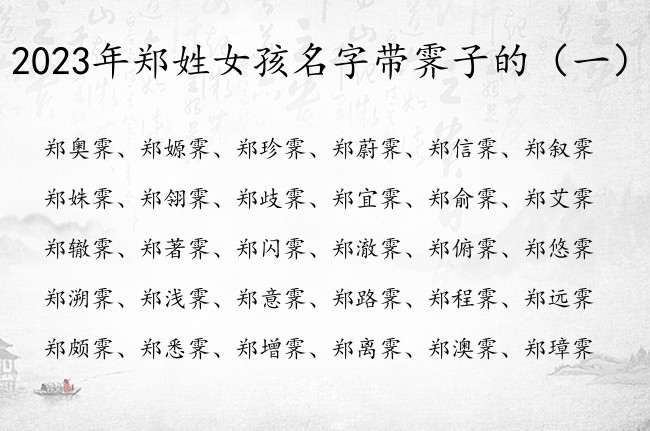 2023年郑姓女孩名字带霁子的（一）
郑奥霁、郑嫄霁、郑珍霁、郑蔚霁、郑信霁、郑叙霁
郑姝霁、郑翎霁、郑歧霁、郑宜霁、郑俞霁、郑艾霁
郑辙霁、郑著霁、郑闪霁、郑澈霁、郑俯霁、郑悠霁
郑溯霁、郑浅霁、郑意霁、郑路霁、郑程霁、郑远霁
郑颇霁、郑悉霁、郑增霁、郑离霁、郑澳霁、郑璋霁